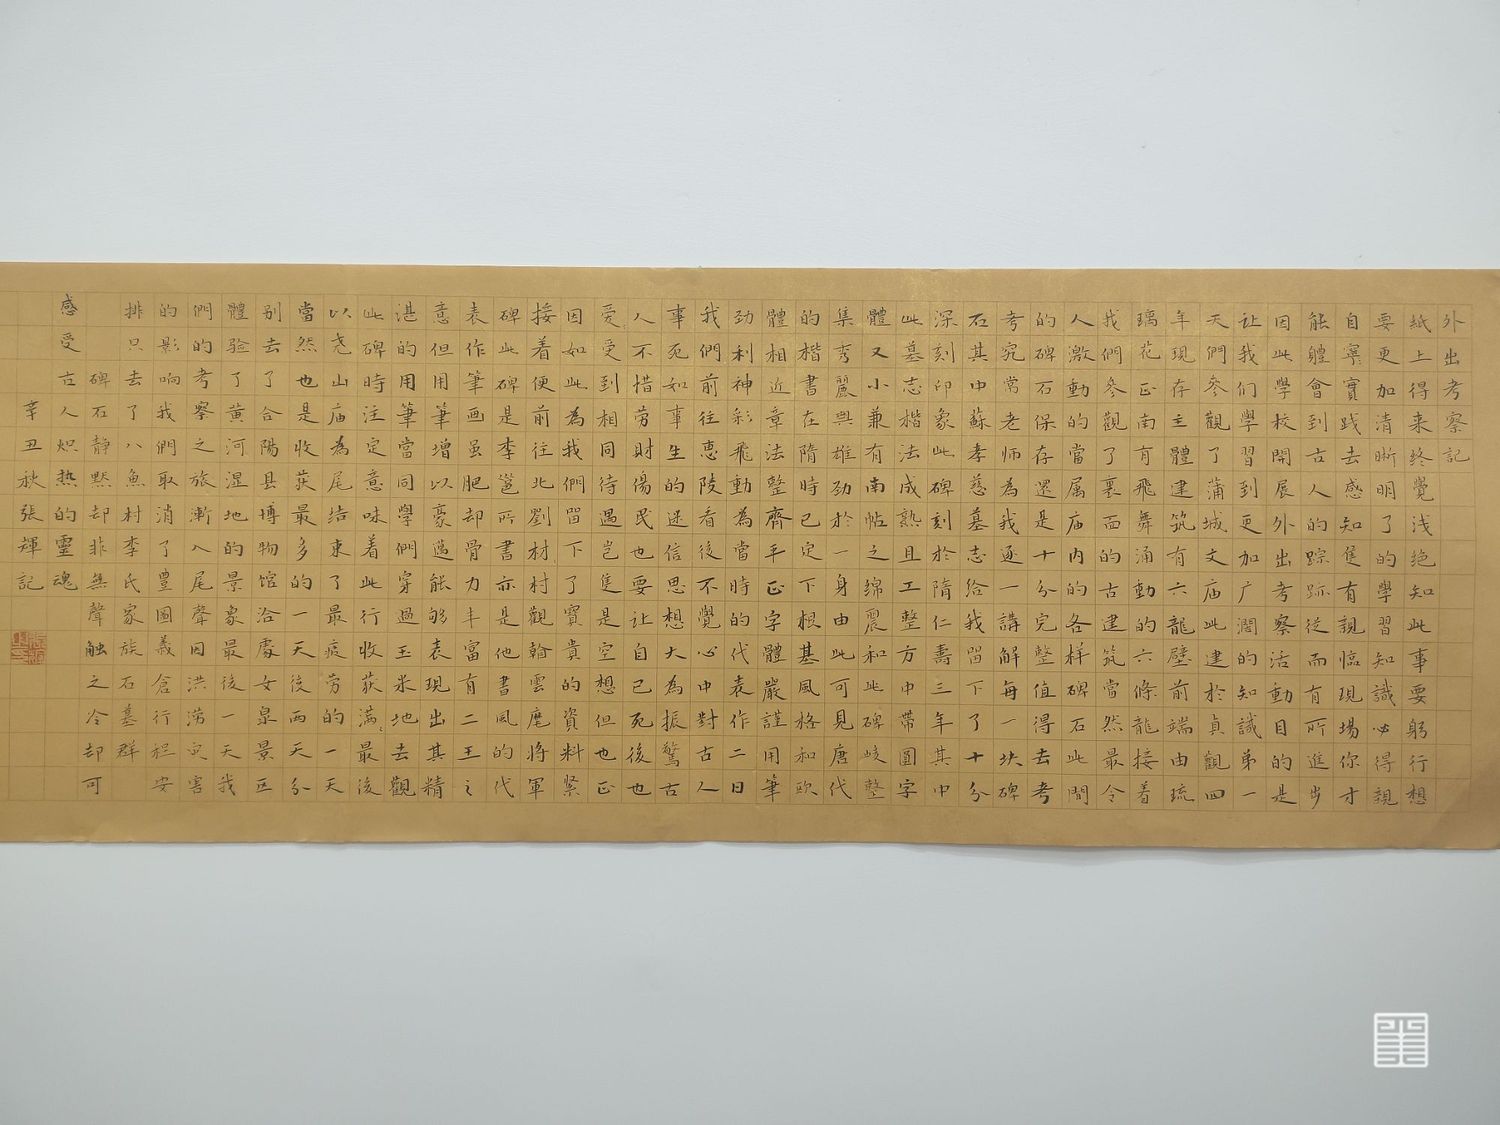 外出考察記
紙上得来终覺浅絶知此事要躬行想
要更加清晰明了的學習知識必得親
自實践去感知隻有親臨現場你才
能體會到古人的踪跡從而有所進步
因此學校開展外出考察活動目的是
让我们學習到更加广阔的知識弟一
天們参觀了蒲城文庙此建於貞觀四
年現存主體建筑有六龍壁前端由琉
璃花正南有飛舞涌動的六條龍接着
我們參觀了裏面的古建筑當然最令
人激動的當属庙内的各样碑石此間
的碑石保存還是十分完整值得去考
考究常老师為我逐一講解每一块碑
石其中蘇孝慈墓志給我留下了十分
深刻印象此碑刻於隋仁壽三年其中
此墓志楷法成熟且工整方中帶圓字
體又小兼有南帖之绵震和此碑峻整
集秀麗與雄劲於一身由此可見唐代
的楷書在隋時已定下根基風格和欧
體相近章法整齊平正字體嚴謹用筆
劲利神彩飛動為當時的代表作二日
我們前往惠陵看後不覺心中對古人
事死如事生的迷信思想大為振驚古
人不措劳財傷民也要让自己死後也
爱受到相同待遇岂隻是空想但也正
因如此為我們留下了寶貴的資料緊
接着便前往北劉材村觀翰雲麾將軍
碑此碑是李邕所書亦是他書風的代
表作筆画虽肥却骨力丰富有二王之
意但用筆增以豪邁能够表現出其精
湛的用筆當同學們穿過玉米地去觀
此碑時注定意味着此行收获满最後
以尧山庙為尾结束了最疲劳的一天
當然也是收获最多的一天後两天分
别去了合陽县博物馆洽處女泉景区
體验了黄河湿地的景象最後一天我
們的考察之旅漸入尾聲因洪涝灾害
的影响我們取消了豊圖義倉行程安
排只去了八魚村李氏家族石墓群
碑石静默却非無聲触之冷却可
感受古人炽热的靈魂
辛丑秋張輝記